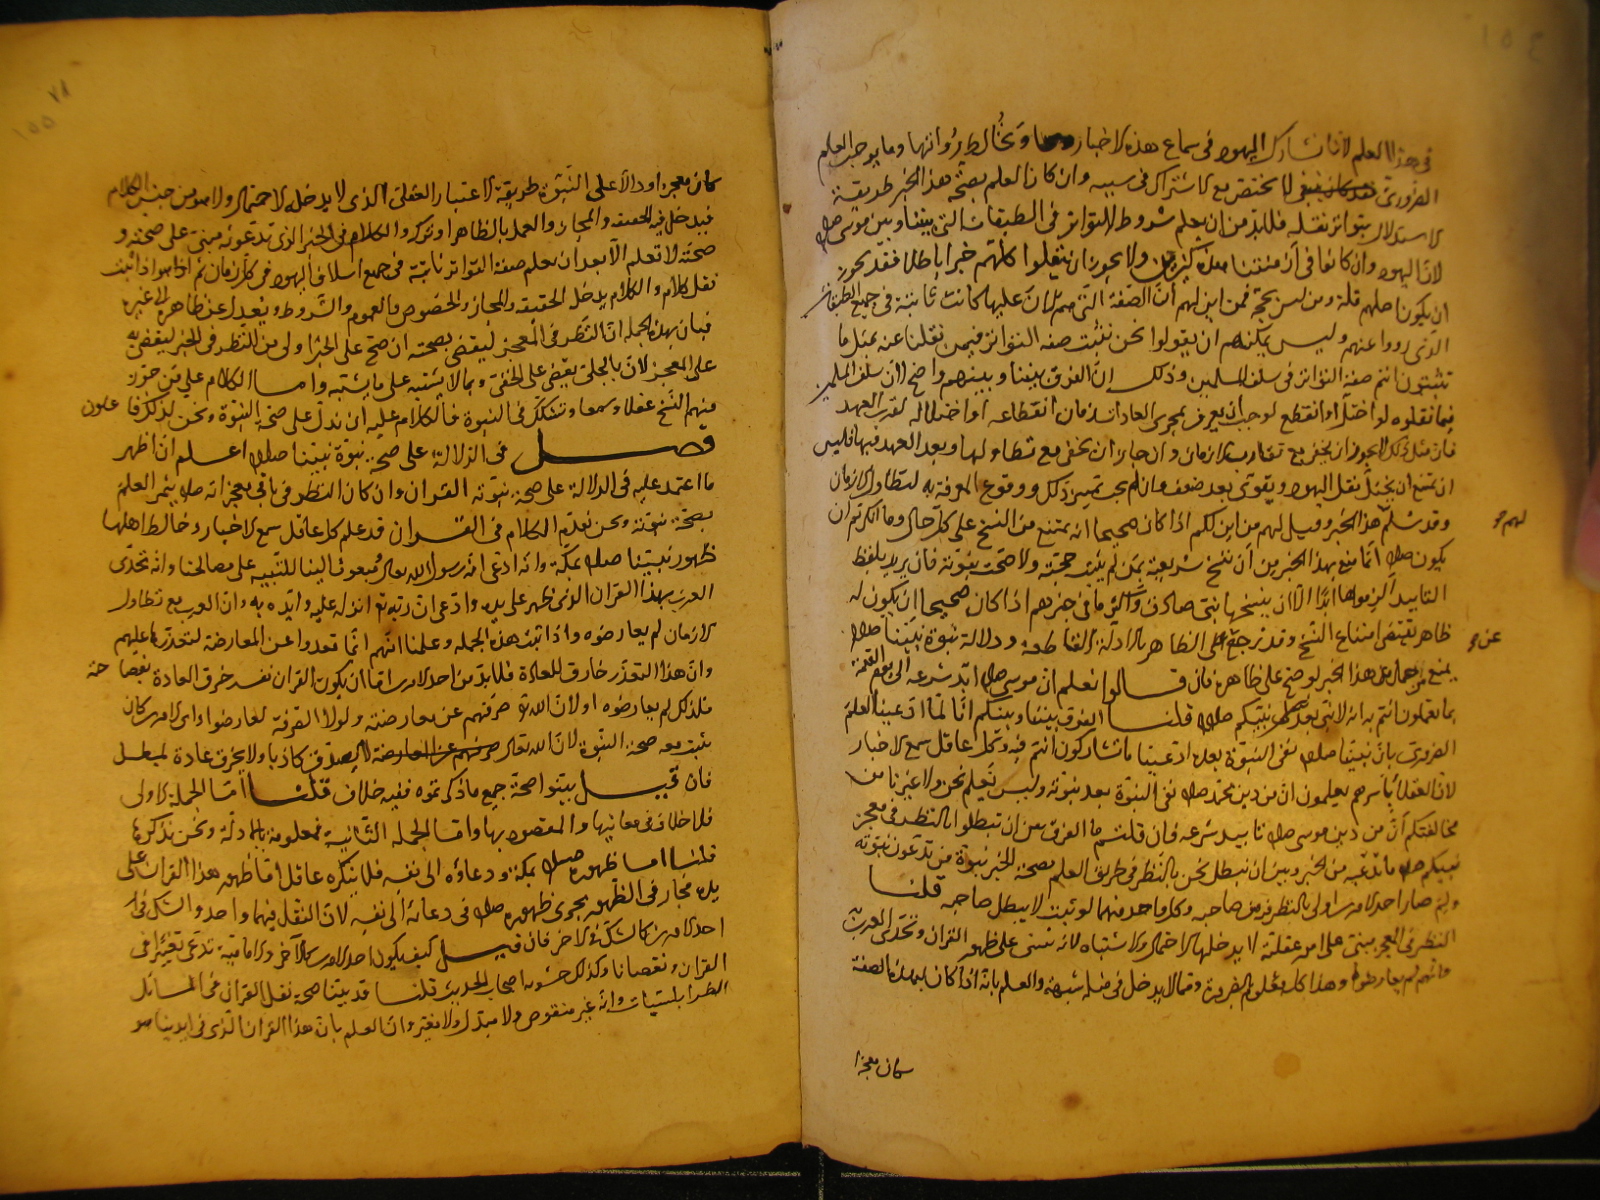 في هذا العلم لأنا نشارك اليهود في سماع هذه الاخبار ونخالط رواتها وما يوجب العلم
الضروري لا يختص مع الاشتراك في سببه وان كان العلم بصحة هذا الخبر طريقة
الاستدلال بتواتر نقله فلا بد من ان يعلم شروط التواتر في الطبقات التي بيننا وبين موسى صلم
لان اليهود وان كانوا في أزمنتنا هذه كثيرين ولا يجوز ان ينقلوا كلهم خبرا باطلا فقد يجوز
ان يكون اصلهم قلة ومن ليس بحجة فمن اين لهم أن الصفة التي هم الآن عليها كانت ثابتة في جميع الطبقات
الذي رووا عنهم وليس يمكنهم ان يقولوا نحن نثبت صفة التواتر فيمن نقلنا عنه بمثل ما
تثبتون انتم صفة التواتر في سلف المسلمين وذلك ان الفرق بيننا وبينهم واضح لان سلف المسلمين
فيما نقلوه لو اختل او انقطع لوجب ان يعرف بمجرى العادات زمان انقطاعه او اختلاله لقرب العهد
فان مثل ذلك لا يجوز ان يخفى مع تقارب الازمان وان جاز ان يخفى مع تطاولها وبعد العهد فيها فليس
يمتنع ان يختل نقل اليهود ويقوى بعد ضعف وان لم يجب تمييز ذلك ووقوع المعرفة به لتطاول الازمان
وقد سلم هذا الخبر وقيل لهم من اين لكم اذا كان صحيحا انه يمتنع من النسخ على كل حال وما انكرتم ان
لهم
يكون صلم انما منع بهذا الخبر من أن تنسخ شريعته بمن لم يثبت حجته ولا صحت نبوته فان يريد بلفظ
التأبيد الزموها ابدا الا ان ينسخها نبي صادق واكثر ما في خبرهم اذا كان صحيحا ان يكون له
ظاهر يقتضي امتناع النسخ وقد نرجع عن الظاهر بالادلة القاطعة ودلالة نبوة نبينا صلم
عن
يمنع من حمل هذا الخبر لو صح على ظاهره فان قالوا نعلم ان موسى صلم ابد شرعه الى يوم القيمة
بما تعلمون انتم به انه لا نبي بعد نبيكم صلم قلنا الفرق بيننا وبينكم انا لما ادعينا العلم
الضروري بان نبينا صلم نفى النبوة بعده ادعينا ما تشاركون انتم فيه وكل عاقل سمع الاخبار
لان العقلاء بأسرهم يعلمون ان من دين محمد صلم نفي النبوة بعد نبوته وليس نعلم نحن ولا غيرنا من
مخالفتكم أن من دين موسى صلم تابيد شرعه فان قلتم ما الفرق بين ان تبطلوا بالنظر في معجز
نبيكم صلم ما ندعيه من الخبر وبين ان نبطل نحن بالنظر في طريق العلم بصحة الخبر نبوة من تدعون نبوته
ولم صار احد الامرين اولى بالنظر فيه من صاحبه وكل واحد منهما لو ثبت لابطل صاحبه قلنا
النظر في المعجز مبني على امور عقلية لا يدخلها الاحتمال والاشتباه لانه يبتني على ظهور القران وتحدى العرب به
وانهم لم يعارضوا وهذا كله معلوم بالضرورة ومما لا يدخل في مثله شبهة والعلم بانه اذا كان بهذه الصفة
كان معجزا
كان معجزا ودالا على النبوة طريقة الاعتبار العقلي الذي لا يدخله الاحتمال ولا هو من جنس الكلام
فيدخل فيه الحقيقة والمجاز والعمل بالظاهر او تركه والكلام في الخبر الذي تدعونه مبني على صحته و
صحته لا تعلم الا بعد أن يعلم صفة التواتر ثابتة في جميع اسلاف اليهود في كل زمان ثم اذا ثبت
نقل كلام والكلام يدخل الحقيقة والمجاز والخصوص والعموم والشروط ويعدل عن ظاهره الى غيره
فبان بهذه الجملة ان النظر في المعجز ليقضى بصحته ان صح على الخبر اولى من النظر في الخبر ليقضى به
على المعجز لان بالجلي يقضى على الخفي وبما لا يشتبه على ما يشتبه واما الكلام على من جوز
منهم النسخ عقلا وسمعا وتشكك في النبوة فالكلام عليه ان ندل على صحة النبوة ونحن لذلك فاعلون
فصل في الدلالة على صحة نبوة نبينا صلم اعلم ان اظهر
ما اعتمد عليه في الدلالة على صحة نبوته القران وان كان النظر في باقي معجزاته صلم يثمر العلم
بصحة نبوته ونحن نقدم الكلام في القران قد علم كل عاقل سمع الاخبار وخالط اهلها
ظهور نبينا صلم بمكة وانه ادعى انه رسول الله تعالى ومبعوث الينا للتنبيه على مصالحنا وانه تحدى
العرب بهذا القران الذي ظهر على يديه وادعى ان ربه تع انزله عليه وايده به وان العرب مع تطاول
الازمان لم يعارضوه واذا ثبت هذه الجملة وعلمنا انهم انما قعدوا عن المعارضة لتعذرها عليهم
وان هذا التعذر خارق للعادة فلا بد من احد الامرين اما ان يكون القران نفسه خرق العادة بفصاحته
فلذلك لم يعارضوه او لان الله تع صرفهم عن معارضته ولولا الصرفة لعارضوا واى الامرين كان
يثبت معه صحة النبوة لان الله تعالى لا يصدق كاذبا ولا يخرق عادة لمبطل
فان قيل بينوا صحة جميع ما ذكرتموه ففيه خلاف قلنا اما الجملة الاولى
فلا خلاف في معانيها والمقصود بها واما الجملة الثانية فمعلومة بالادلة ونحن نذكرها
قلنا اما ظهوره صلم بمكة ودعاؤه الى نفسه فلا ينكره عاقل اما ظهور هذا القران على
يده فجار في الظهور مجرى ظهوره صلم في دعائه الى نفسه لان النقل فيهما واحد والشك في
احد الامرين كالشك في الاخر فان قيل كيف يكون احد الامرين كالاخر والامامية تدعى تغييرا في
القران ونقصانا وكذلك حشوية اصحاب الحديث قلنا قد بينا صحة نقل القران في المسائل
الطرابلسيات وانه غير منقوص ولا مبدل ولا مغير وان العلم بان هذا القران الذي في ايدينا هو